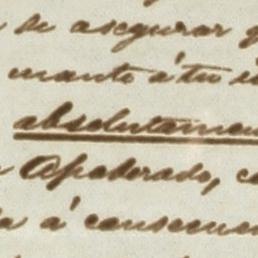 de asegurar
mante á tu
absolutamen
Apoderado, c
a á consecuen